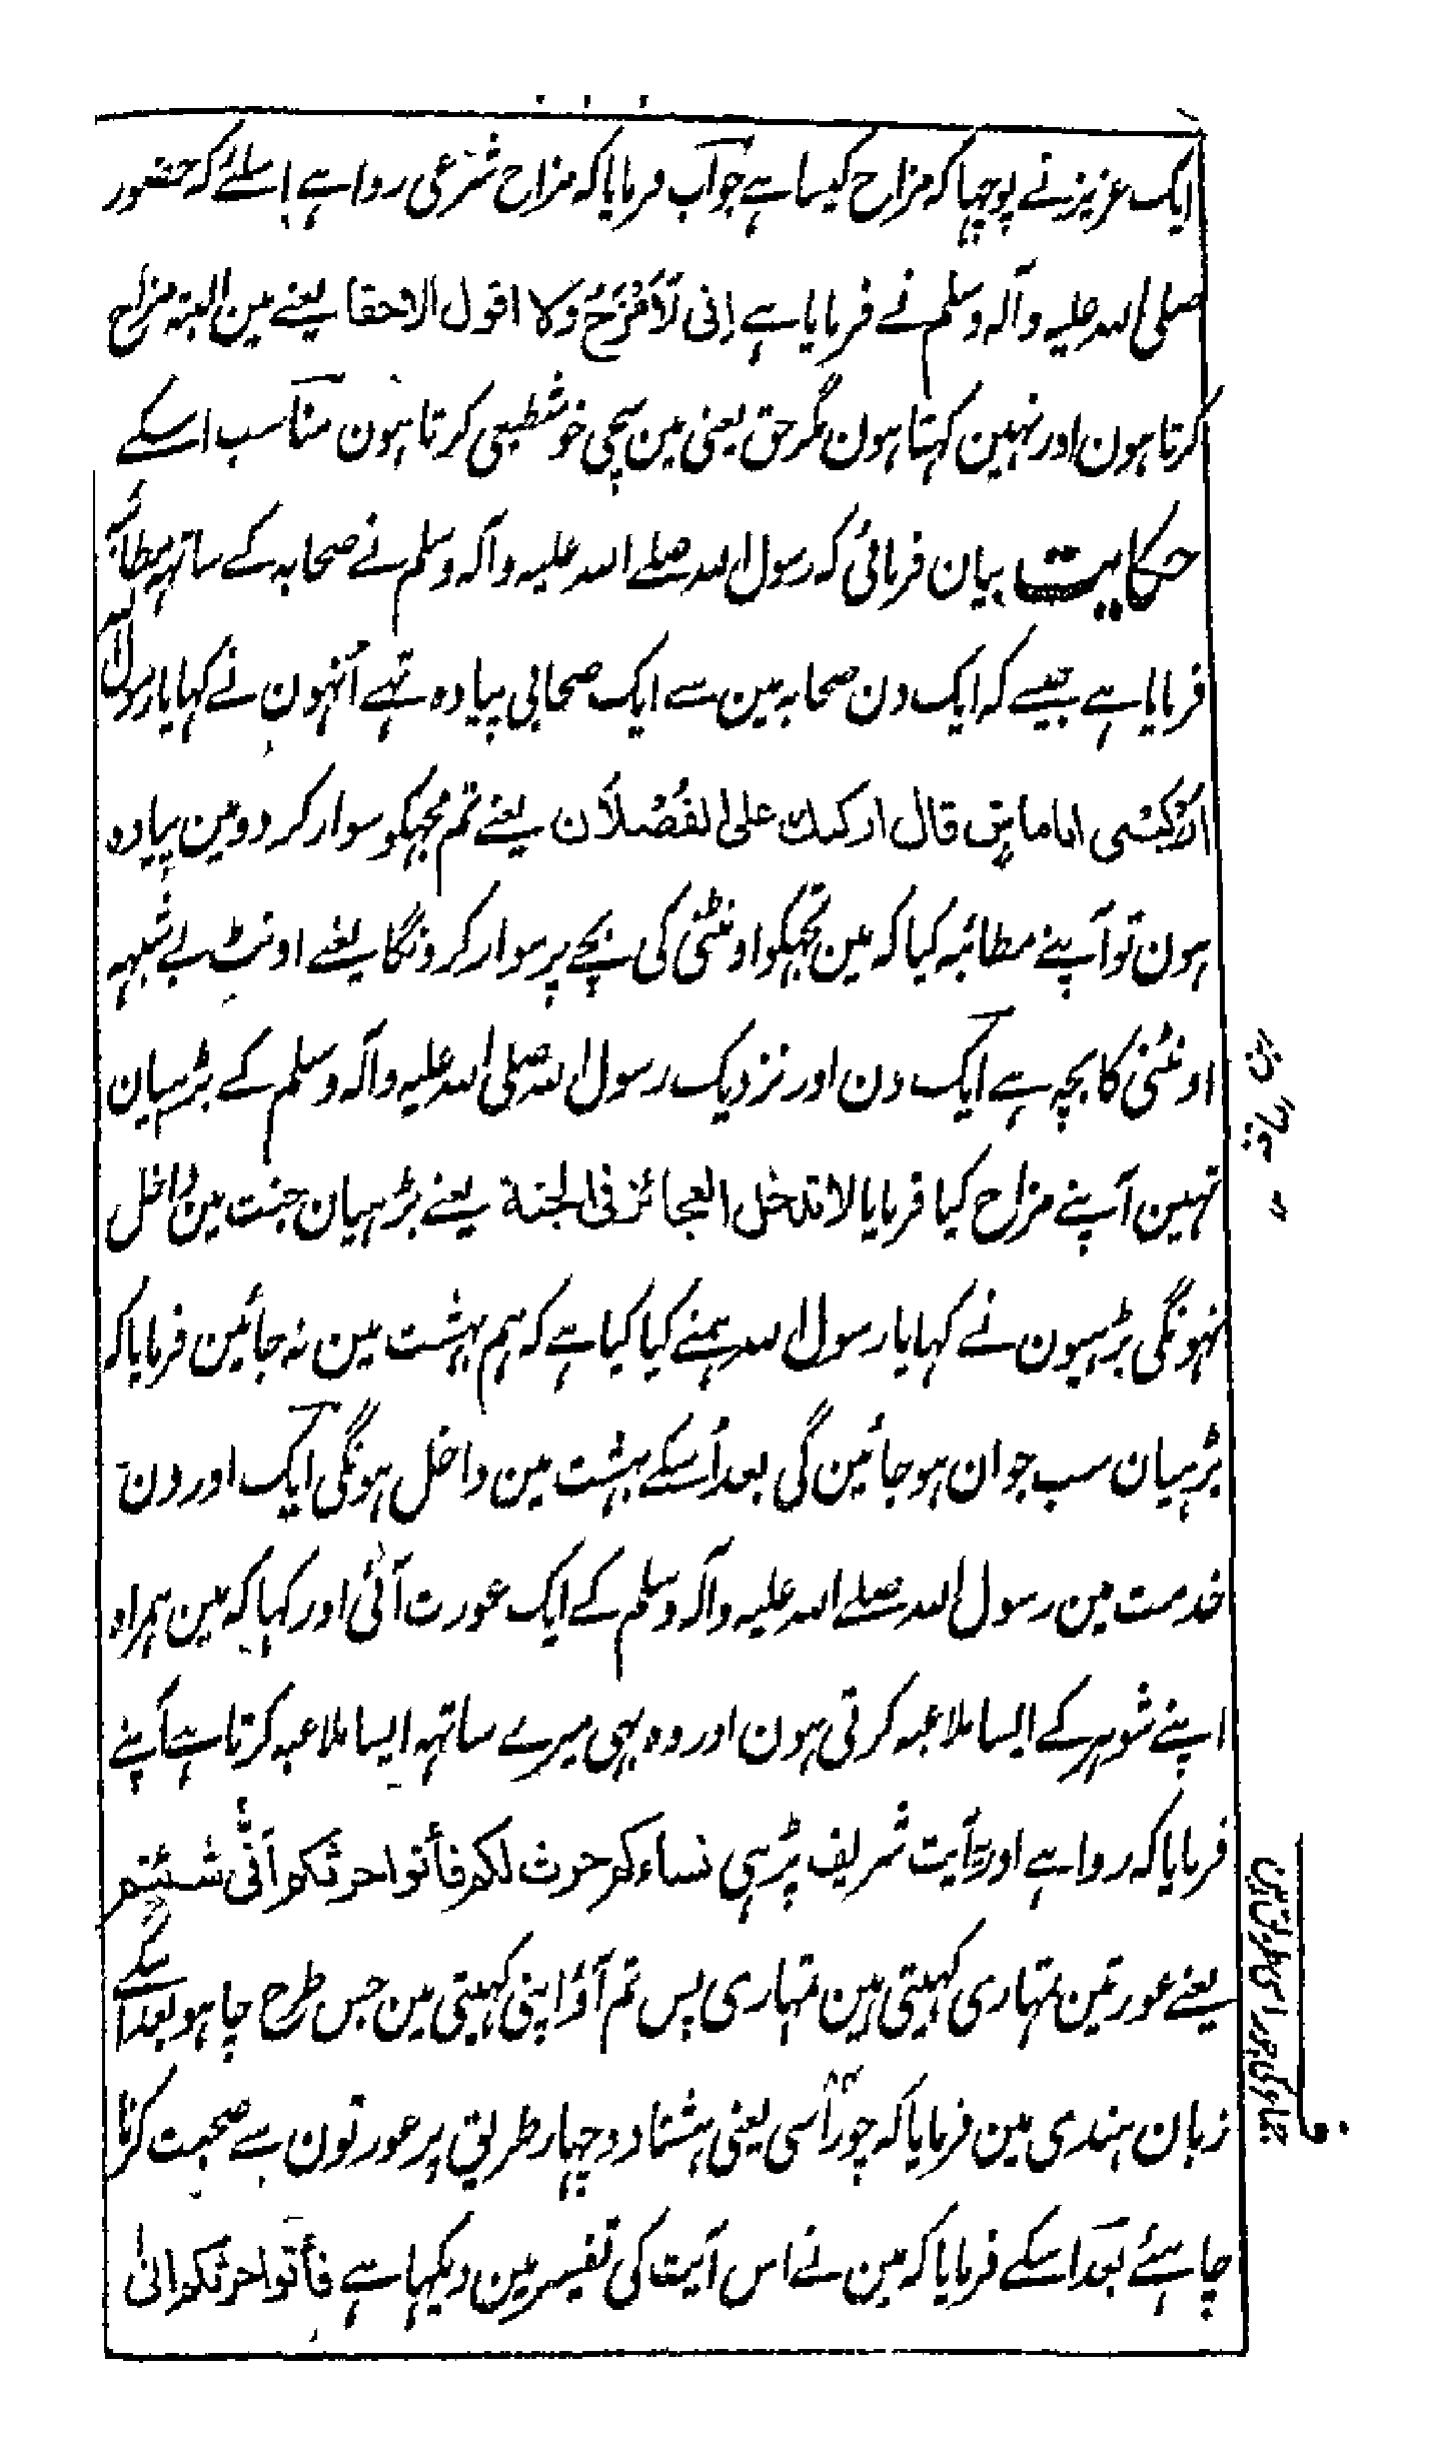 ایک عزیز نے پوچہا کہ مزاح کیسا ہے جواب فرمایا کہ مزاح شرعی روا ہے اسلئے کہ حضور
صلی اللہ علیہ وآلہ وسلم نے فرمایا ہے اِنی لَاَمْزَحُ وَلا اقول الا حقا یعنے مین البتہ مزاح
کرتا ہون اور نہین کہتا ہون مگر حق یعنی مین سچی خوشطبعی کرتا ہون مناسب اسکے
حکایت بیان فرمائی کہ رسول اللہ صلے اللہ علیہ وآلہ وسلم نے صحابہ کے ساتہہ مطائبہ
فرمایا ہے جیسے کہ ایک دن صحابہ مین سے ایک صحابی پیادہ تہے اُنہون نے کہا یا رسول اللہ
اَرْکِبْنِی اناماش قال ارکبک علی الفُصْلَان یعنے تم مجہکو سوار کر دو مین پیادہ
ہون تو آپنے مطائبہ کیا کہ مین تجہکو اونٹنی کی بچے پر سوار کرونگا یعنے اونٹ بے شبہہ
اونٹنی کا بچہ ہے ایک دن اور نزدیک رسول اللہ صلی اللہ علیہ وآلہ وسلم کے بڑہیان
تہین آپنے مزاح کیا فرمایا لا تدخل العجائز فی الجنة یعنے بڑہیان جنت مین داخل
نہونگی بڑہیون نے کہا یا رسول اللہ ہمنے کیا کیا ہے کہ ہم بہشت مین نہ جائین فرمایا کہ
بڑہیان سب جوان ہو جائین گی بعد اُسکے بہشت مین داخل ہونگی ایک اور دن
خدمت مین رسول اللہ صلے اللہ علیہ وآلہ وسلم کے ایک عورت آئی اور کہا کہ مین ہمراہ
اپنے شوہر کے ایسا ملاعبہ کرتی ہون اور وہ بہی میرے ساتہہ ایسا ملاعبہ کرتا ہے آپنے
فرمایا کہ روا ہے اور یہ آیت شریف پڑہی نساءکم حرث لکم فأتوا حرثکم اَنّٰی شئتم
یعنے عورتین تمہاری کہیتی ہین تمہاری پس تم آؤ اپنی کہیتی مین جس طرح چاہو بعد اسکے
زبان ہندی مین فرمایا کہ چوراسی یعنی ہشتاد و چہار طریق پر عورتون سے صحبت کرنا
چاہئے بعد اسکے فرمایا کہ مین نے اس آیت کی تفسیر مین دیکہا ہے فأتوا حرثکم انیٰ